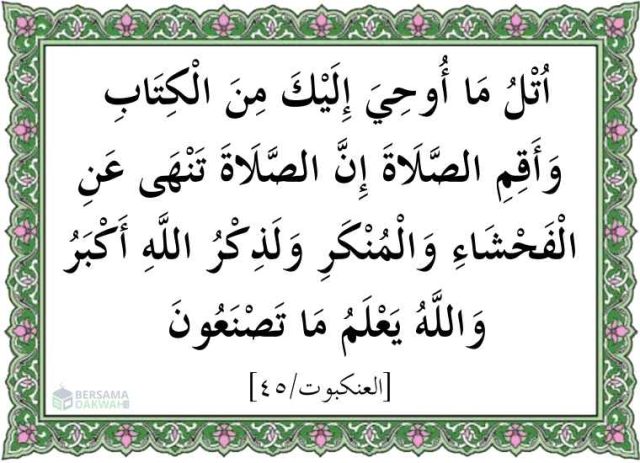 اُتْلُ مَا أُوحِيَ إِلَيْكَ مِنَ الْكِتَابِ
وَأَقِمِ الصَّلَاةَ إِنَّ الصَّلَاةَ تَنْهَى عَنِ
الْفَحْشَاءِ وَالْمُنْكَرِ وَلَذِكْرُ اللَّهِ أَكْبَرُ
وَاللَّهُ يَعْلَمُ مَا تَصْنَعُونَ
[العنكبوت/٤٥]
BERSAMA
DAKWAH